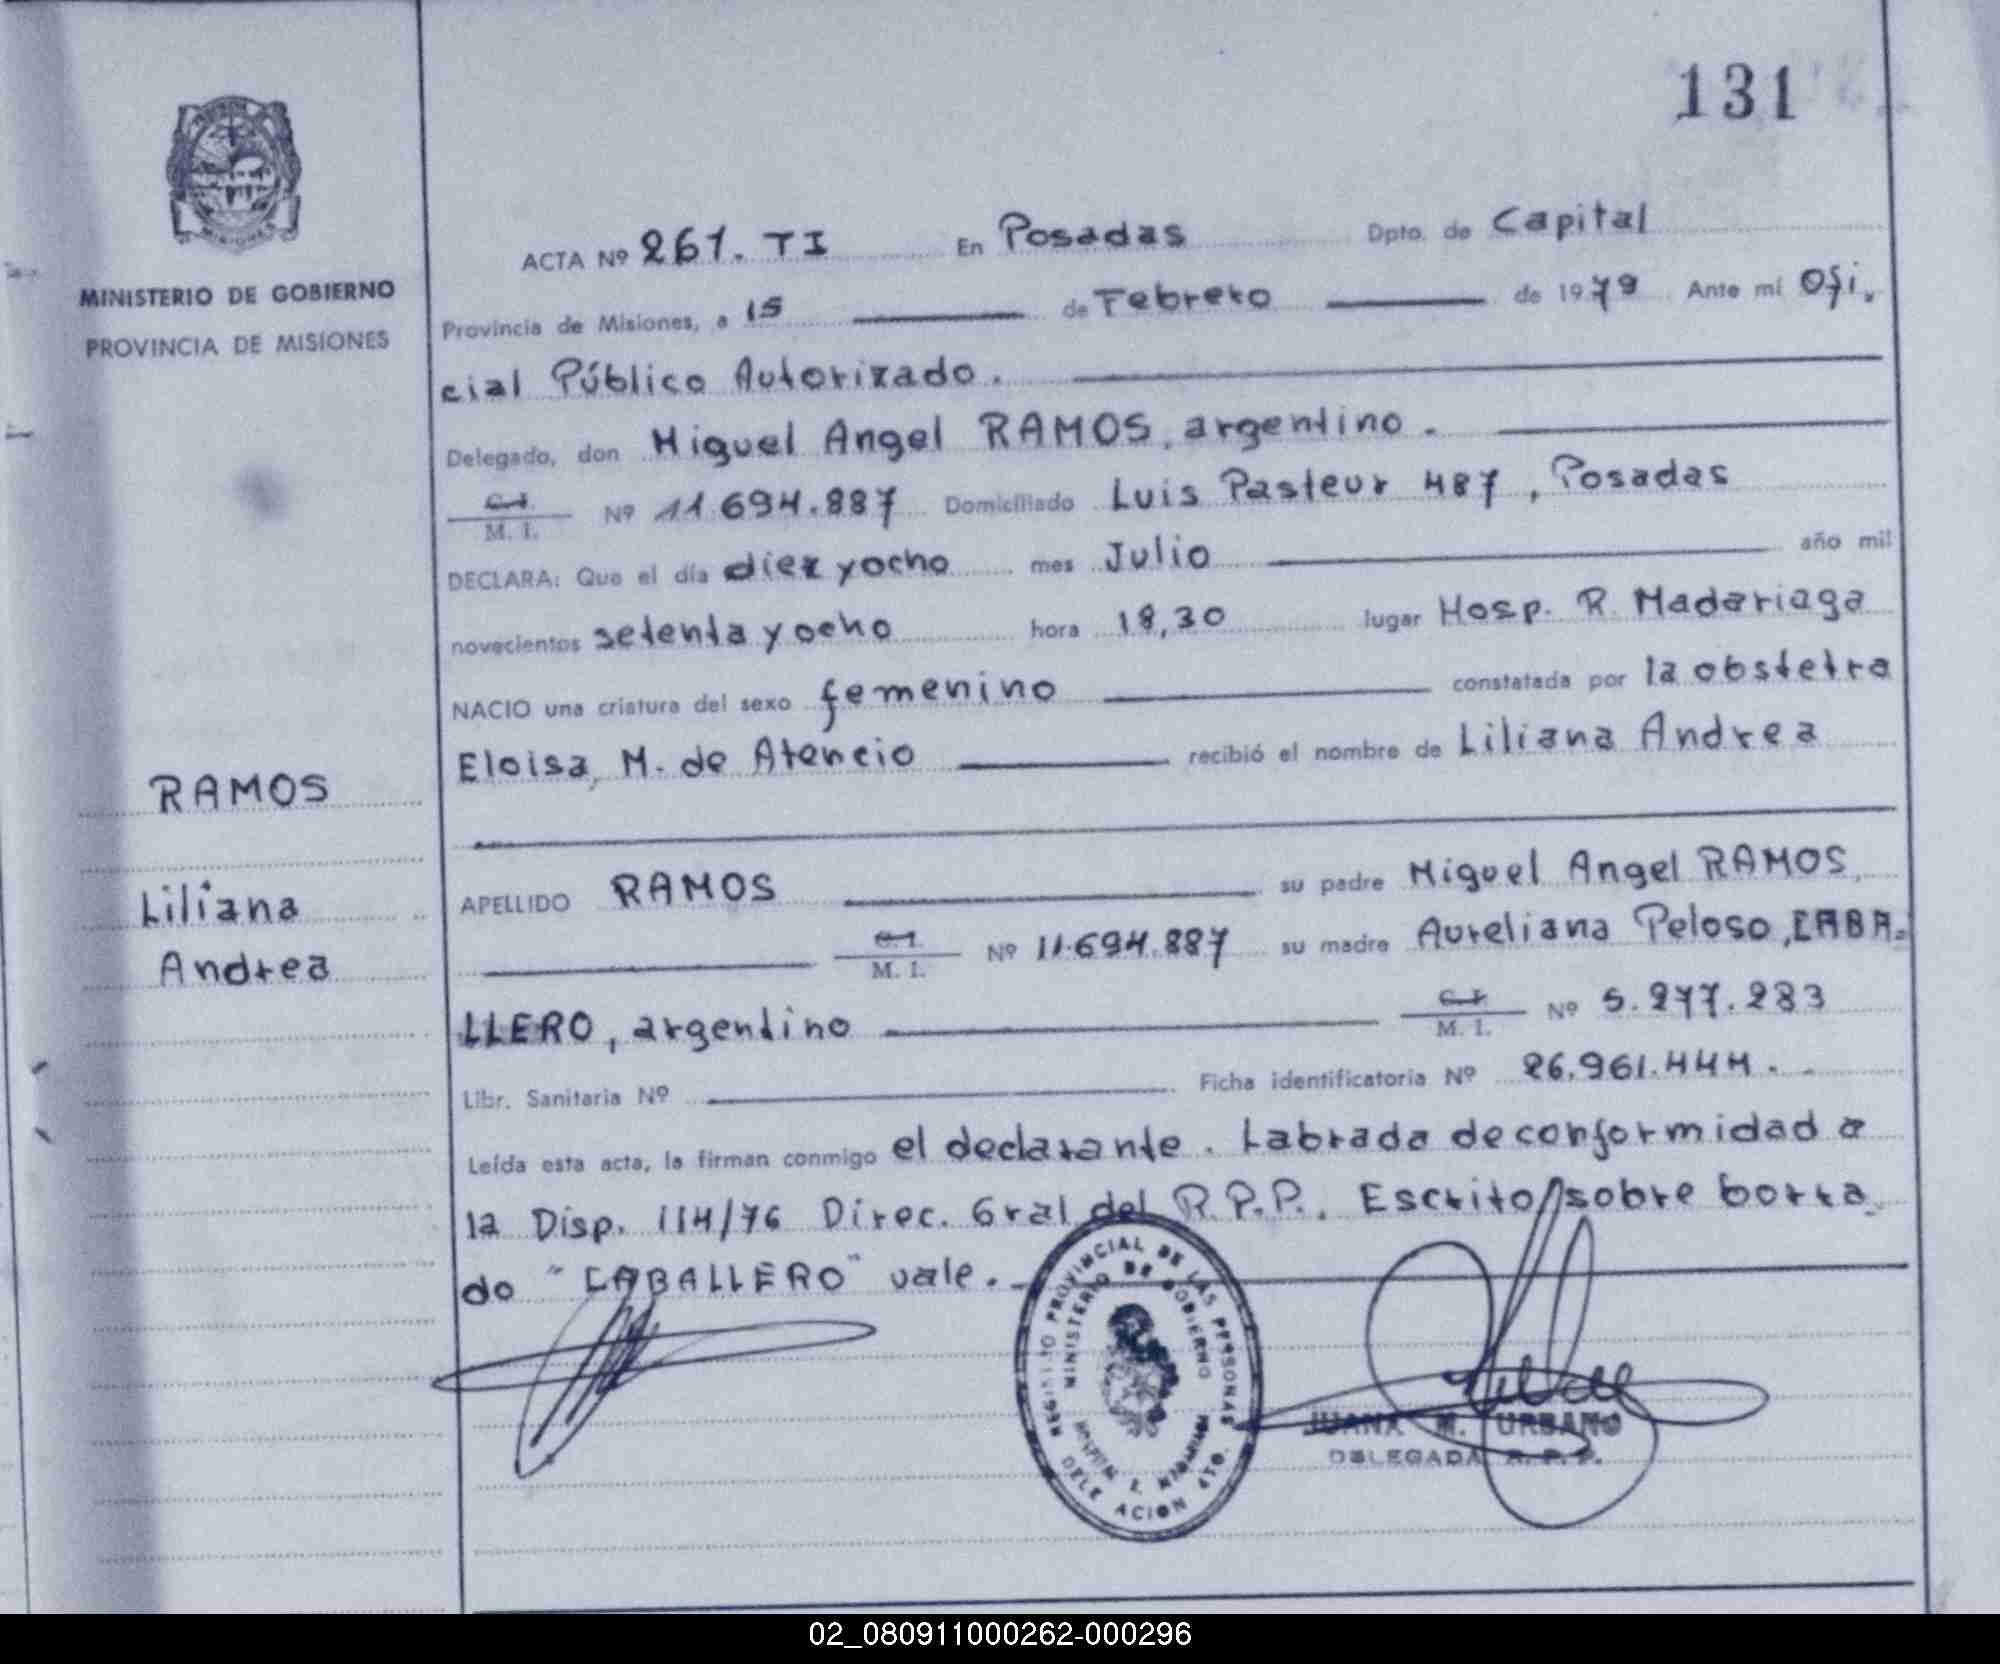 131
MINISTERIO DE GOBIERNO
PROVINCIA DE MISIONES
ACTA Nº 261. TI En Posadas Dpto. de Capital
Provincia de Misiones, a 15 de Febrero de 1979 Ante mi Ofi.
cial Público Autorizado.
Delegado, don Miguel Angel RAMOS, argentino.
C.I.
M. I. Nº 11.694.887 Domiciliado Luis Pasteur 487, Posadas
DECLARA: Que el día diez y ocho mes Julio año mil
novecientos setenta y ocho hora 18,30 lugar Hosp. R. Madariaga
NACIO una criatura del sexo femenino constatada por la obstetra
Eloisa, M. de Atencio recibió el nombre de Liliana Andrea
RAMOS
Liliana
Andrea
APELLIDO RAMOS su padre Miguel Angel RAMOS,
C.I.
M. I. Nº 11.694.887 su madre Aureliana Peloso, CABA-
LLERO, argentino C.I.
M. I. Nº 5.277.283
Libr. Sanitaria Nº Ficha identificatoria Nº 26.961.444.
Leída esta acta, la firman conmigo el declarante. Labrada de conformidad a
la Disp. 114/76 Direc. Gral del R.P.P. Escrito sobre borra
do "CABALLERO" vale.
REGISTRO PROVINCIAL DE LAS PERSONAS
MINISTERIO DE GOBIERNO
DELEGACION 4TO.
JUANA M. URBANO
DELEGADA R.P.P.
02_080911000262-000296